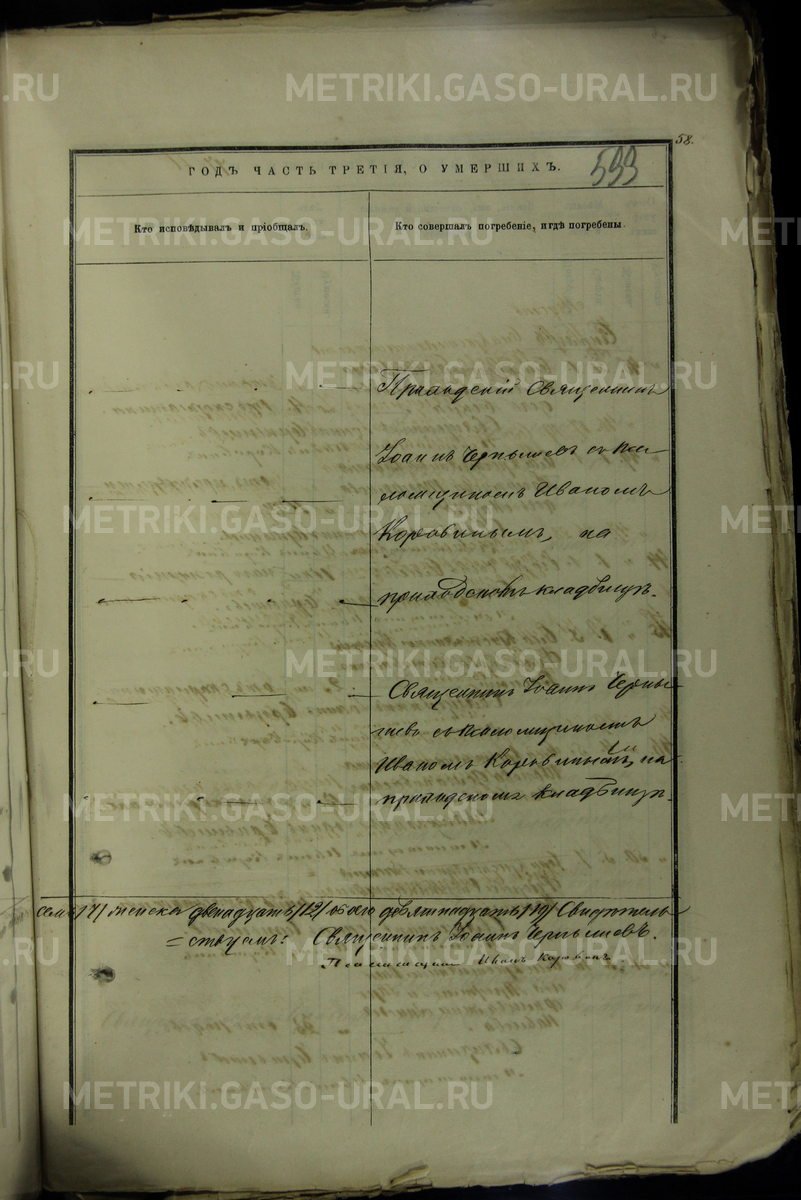 58.
ГОДЪ ЧАСТЬ ТРЕТІЯ, О УМЕРШИХЪ.
593
Кто исповѣдывалъ и пріобщалъ.
Кто совершалъ погребеніе, и гдѣ погребены.
Священникъ
Іоаннъ Чернышевъ съ пса-
ломщикомъ Иваномъ
Коровинымъ, на
приходскомъ кладбищѣ.
Священникъ Іоаннъ Черны-
шевъ съ псаломщикомъ
Иваномъ Коровинымъ, на
приходскомъ кладбищѣ.
семь /7/ женска двѣнадцать /12/ обоего девятнадцать /19/ Свидѣтель-
=ствуемъ: Священникъ Іоаннъ Чернышевъ.
Псаломщикъ Иванъ Коровинъ.
METRIKI.GASO-URAL.RU